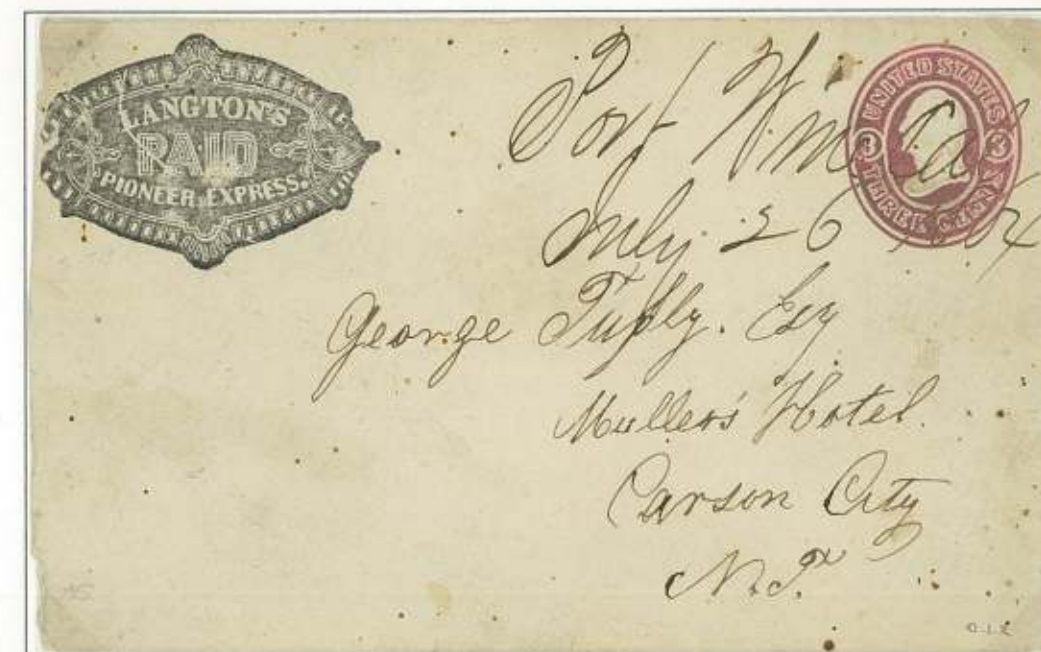 LANGTON'S
PAID
PIONEER EXPRESS.
UNITED STATES
3 3
THREE CENTS
Port Wine Cal
July 26 1864
George Tufly. Esq
Muller's Hotel.
Carson City
N.T.